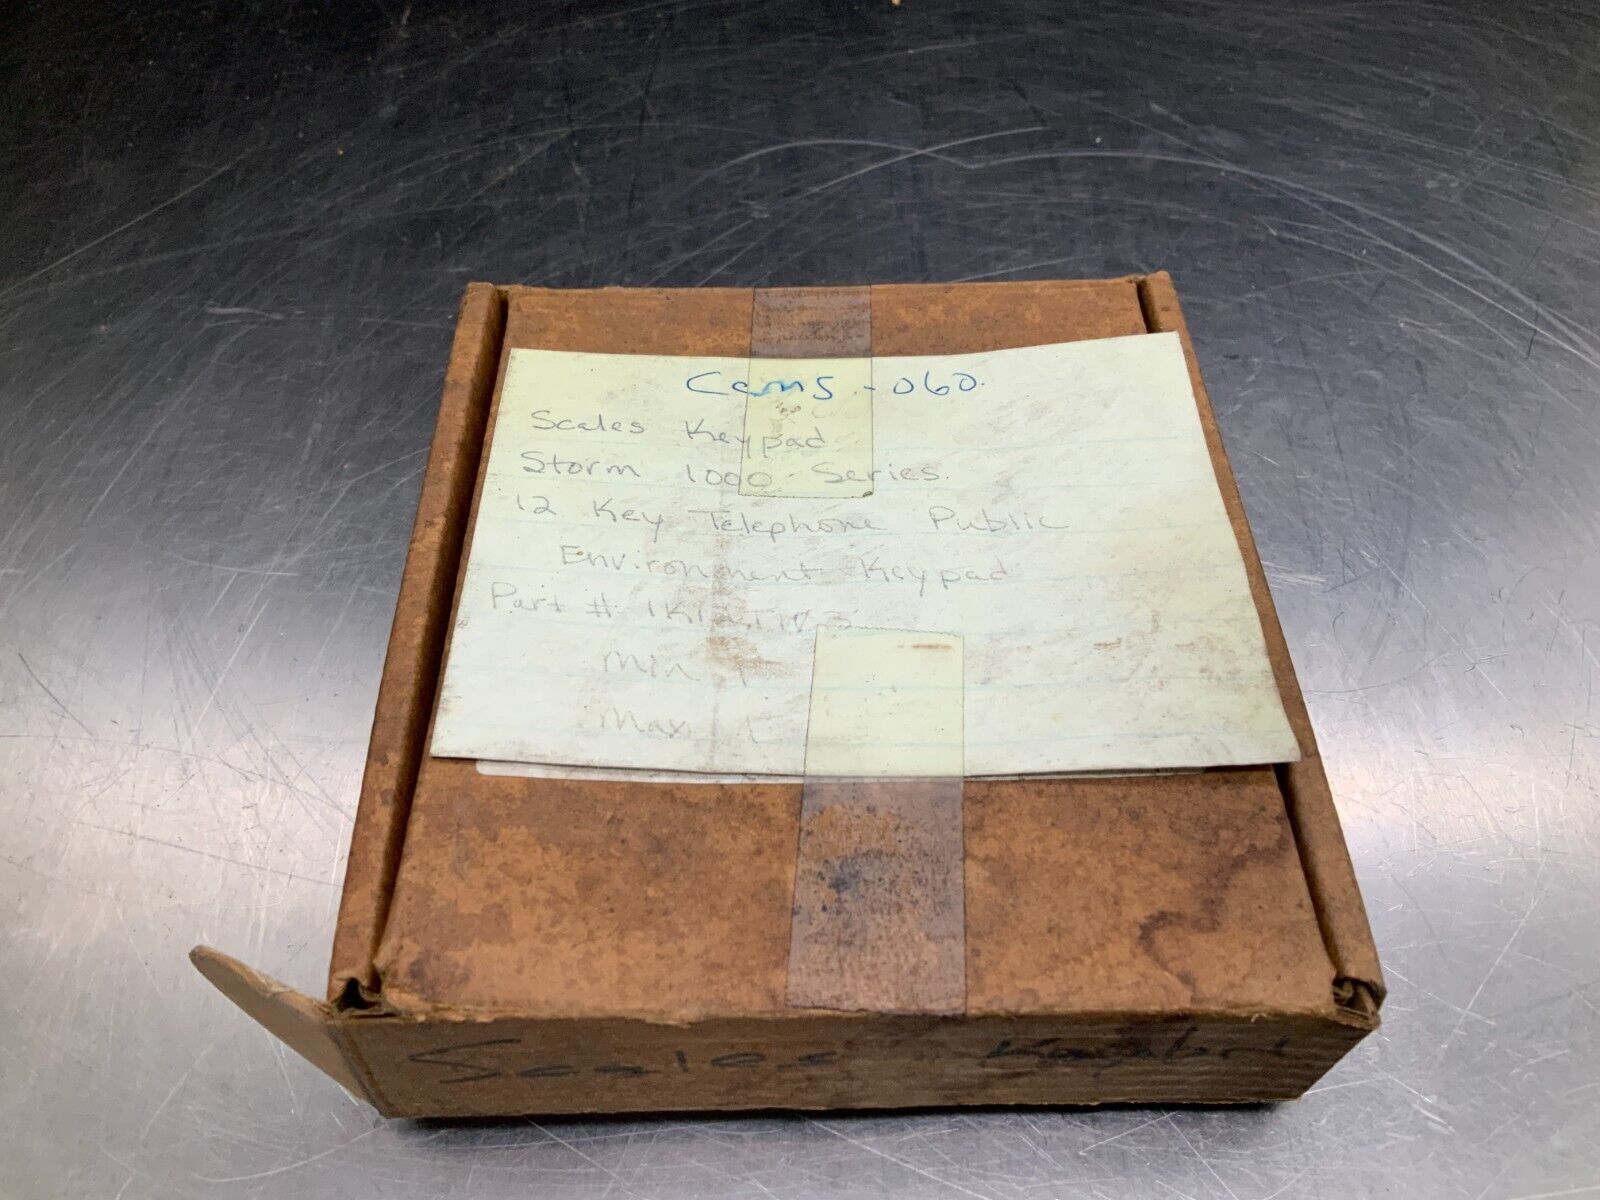 Cams-060.
Scales Keypad
Storm 1000 Series.
12 Key Telephone Public
Environment Keypad
Part #
Min 1
Max 1
Scales